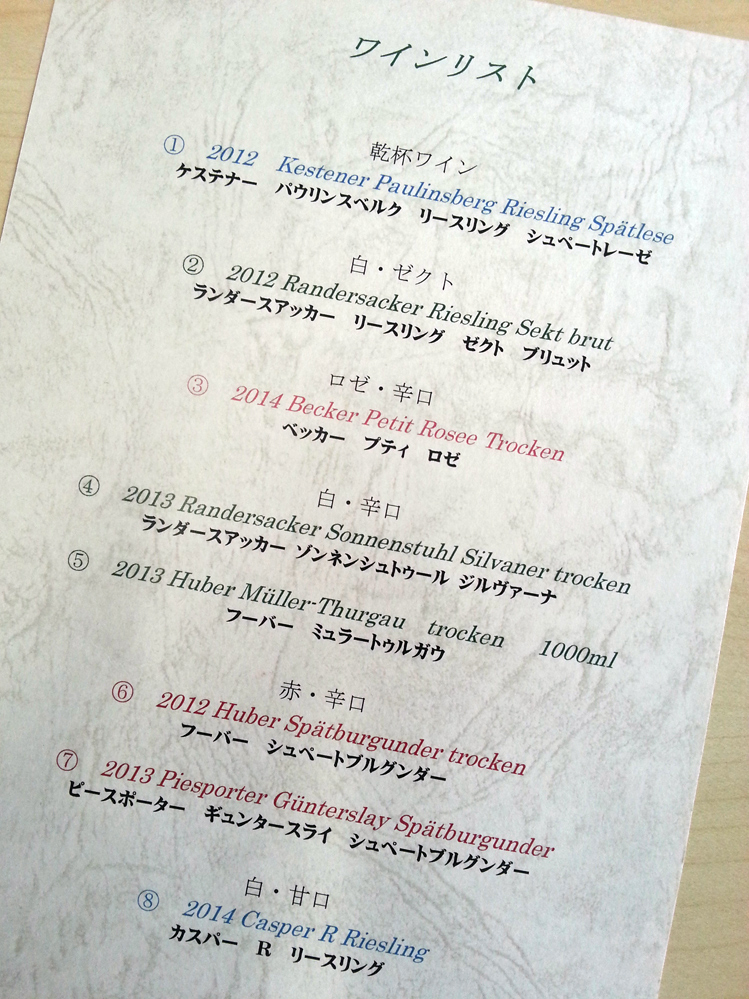 ワインリスト
乾杯ワイン
① 2012 Kestener Paulinsberg Riesling Spätlese
ケステナー パウリンスベルク リースリング シュペートレーゼ
白・ゼクト
② 2012 Randersacker Riesling Sekt brut
ランダースアッカー リースリング ゼクト ブリュット
ロゼ・辛口
③ 2014 Becker Petit Rosee Trocken
ベッカー プティ ロゼ
白・辛口
④ 2013 Randersacker Sonnenstuhl Silvaner trocken
ランダースアッカー ゾンネンシュトゥール ジルヴァーナ
⑤ 2013 Huber Müller-Thurgau trocken 1000ml
フーバー ミュラートゥルガウ
赤・辛口
⑥ 2012 Huber Spätburgunder trocken
フーバー シュペートブルグンダー
⑦ 2013 Piesporter Günterslay Spätburgunder
ピースポーター ギュンタースライ シュペートブルグンダー
白・甘口
⑧ 2014 Casper R Riesling
カスパー R リースリング